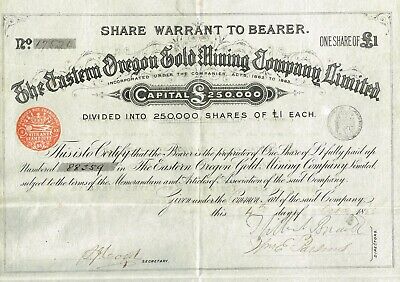 SHARE WARRANT TO BEARER.
No.
ONE SHARE OF £1
The Eastern Oregon Gold Mining Company, Limited.
INCORPORATED UNDER THE COMPANIES ACTS, 1862 TO 1883.
CAPITAL £250,000
DIVIDED INTO 250,000 SHARES OF £1 EACH.
This is to Certify that the Bearer is the proprietor of One Share of £1 fully paid up
Numbered 88359 in The Eastern Oregon Gold Mining Company, Limited,
subject to the terms of the Memorandum and Articles of Association of the said Company.
Given under the Common Seal of the said Company,
this day of
SECRETARY.
DIRECTORS.